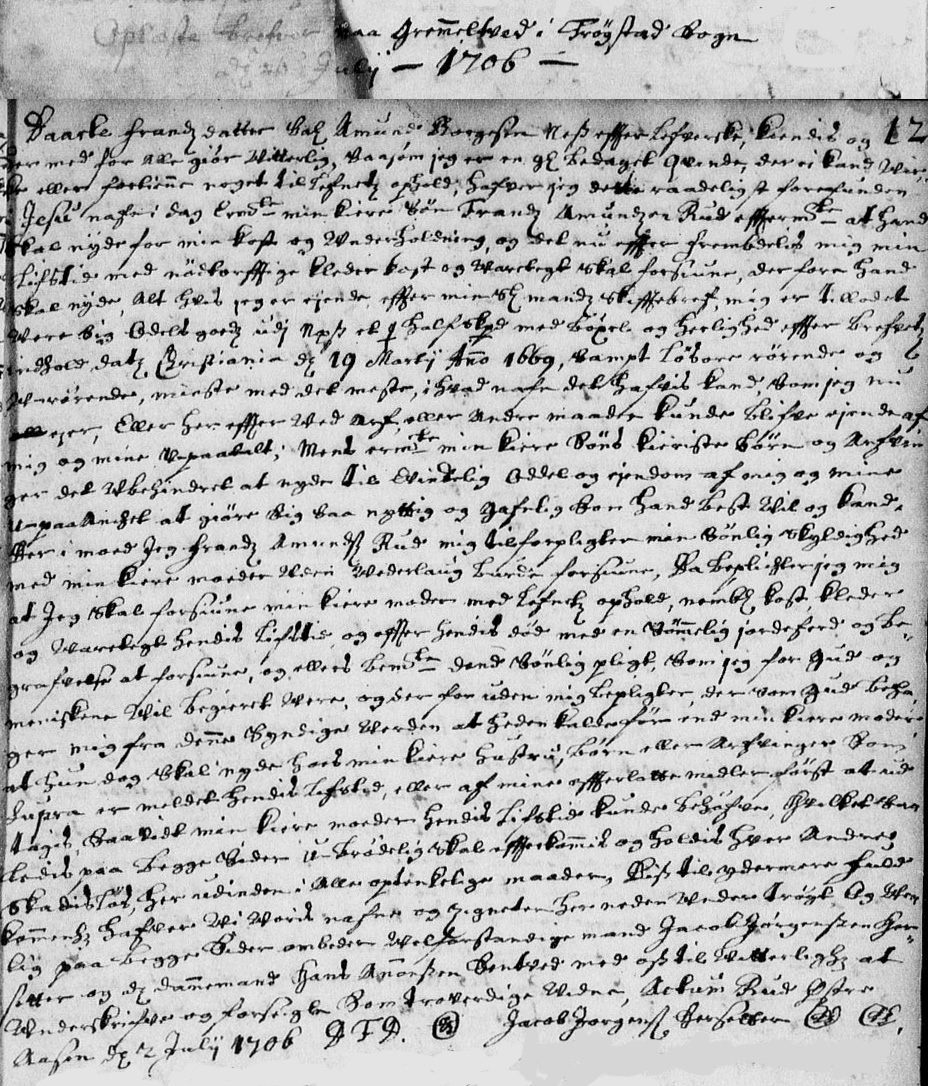 Oplæste brefver paa Gremeltved i Trøgstad Sogn
dɮ 20 July — 1706 —
12
Baarle Frandz datter Sal Amund Borgesen Næs effterlefverske, kiendis og
giør med for alle giør vitterlig, saasom jeg er en gl bedaget qvinde, der ei kand vir
eller fortienne noget til lefnetz ophold, hafver jeg dette raadeligst forefunden
Jesu nafn i dag Ermte min kiere Søn Frandz Amundzen Rud effterm at hand
skal nyde for min kost og underholdning, og det nu effter frembdelis mig min
lifstid med nødtørfftige kleder kost og varetegt skal forsiune, der fore hand
skal nyde, alt hvis jeg er ejende, effter min Sl mandz skifftebref, mig er tilladet
være sig odels goedz udj Næss et halfskpd med bøxel og herlighed effter brefvetz
indhold datɮ Christiania dɮ 19 Marty Ano 1669, sampt løsøre rørende og
urørende, minste med det meste, i hvad nafn det hafvis kand som jeg nu
ejer, Eller her effter ved arf eller andre maader kunde blifve ejende af
mig og mine upaatalt, Mens ermte min kiere Søns kieriste børn og arfvin
ger det ubehindret at nyde til Evindelig Oddel og ejendom af mig og mine
u-paaAncket at giøre sig saa nyttig og gafnlig som hand best vil og kand,
Her i moed Jeg Frandz Amundss Rud mig tilforpligter min Sønlig skyldighed
med min kiere moeder uden vederlaug burde forsiune, Da beplichter jeg mig
at Jeg skal forsiune min kiere moder med lefnetz ophold, nembl kost kleder
og varetegt hendis lifstid og effter hendis død med en sømmelig jordeferd og be-
grafvelse at forsiune, og ellers bem dend Sønlig pligt, som jeg for Gud og
meniskene vil begieret vere, og der foruden mig bepligter, der som Gud beha
ger mig fra denne Syndige verden at heden kalde før end min kiere moder
at hun dog skal nyde hoes min kiere hustru, børn eller arfvinger som
supra er meldet hendis lifstid, eller af mine effterlatte midler først at ud
tagis, saavidt min kiere moeder hendis lifstid kunde behøfve, hvilket saa
ledis paa begge sider u-brødelig skal effterkommis og holdis hver andre
skadisløs, her udinden i alle optenkelige maader, Dis til ydermere fuld
kommenhz hafver vi vores nafne og zigneter her neden under trøgt, Og ven
lig paa begge sider ombeder velforstandige mand Jacob Jørgensen Her-
setter og dɮ dannemand Hans Amonssen Bentved med oss til vitterlighz at
underskrifve og forseigle som troverdige vidne, Actum Rud Østre
Aasen dɮ 2 July 1706 B F D. Jacob Jorgenss Hersetter